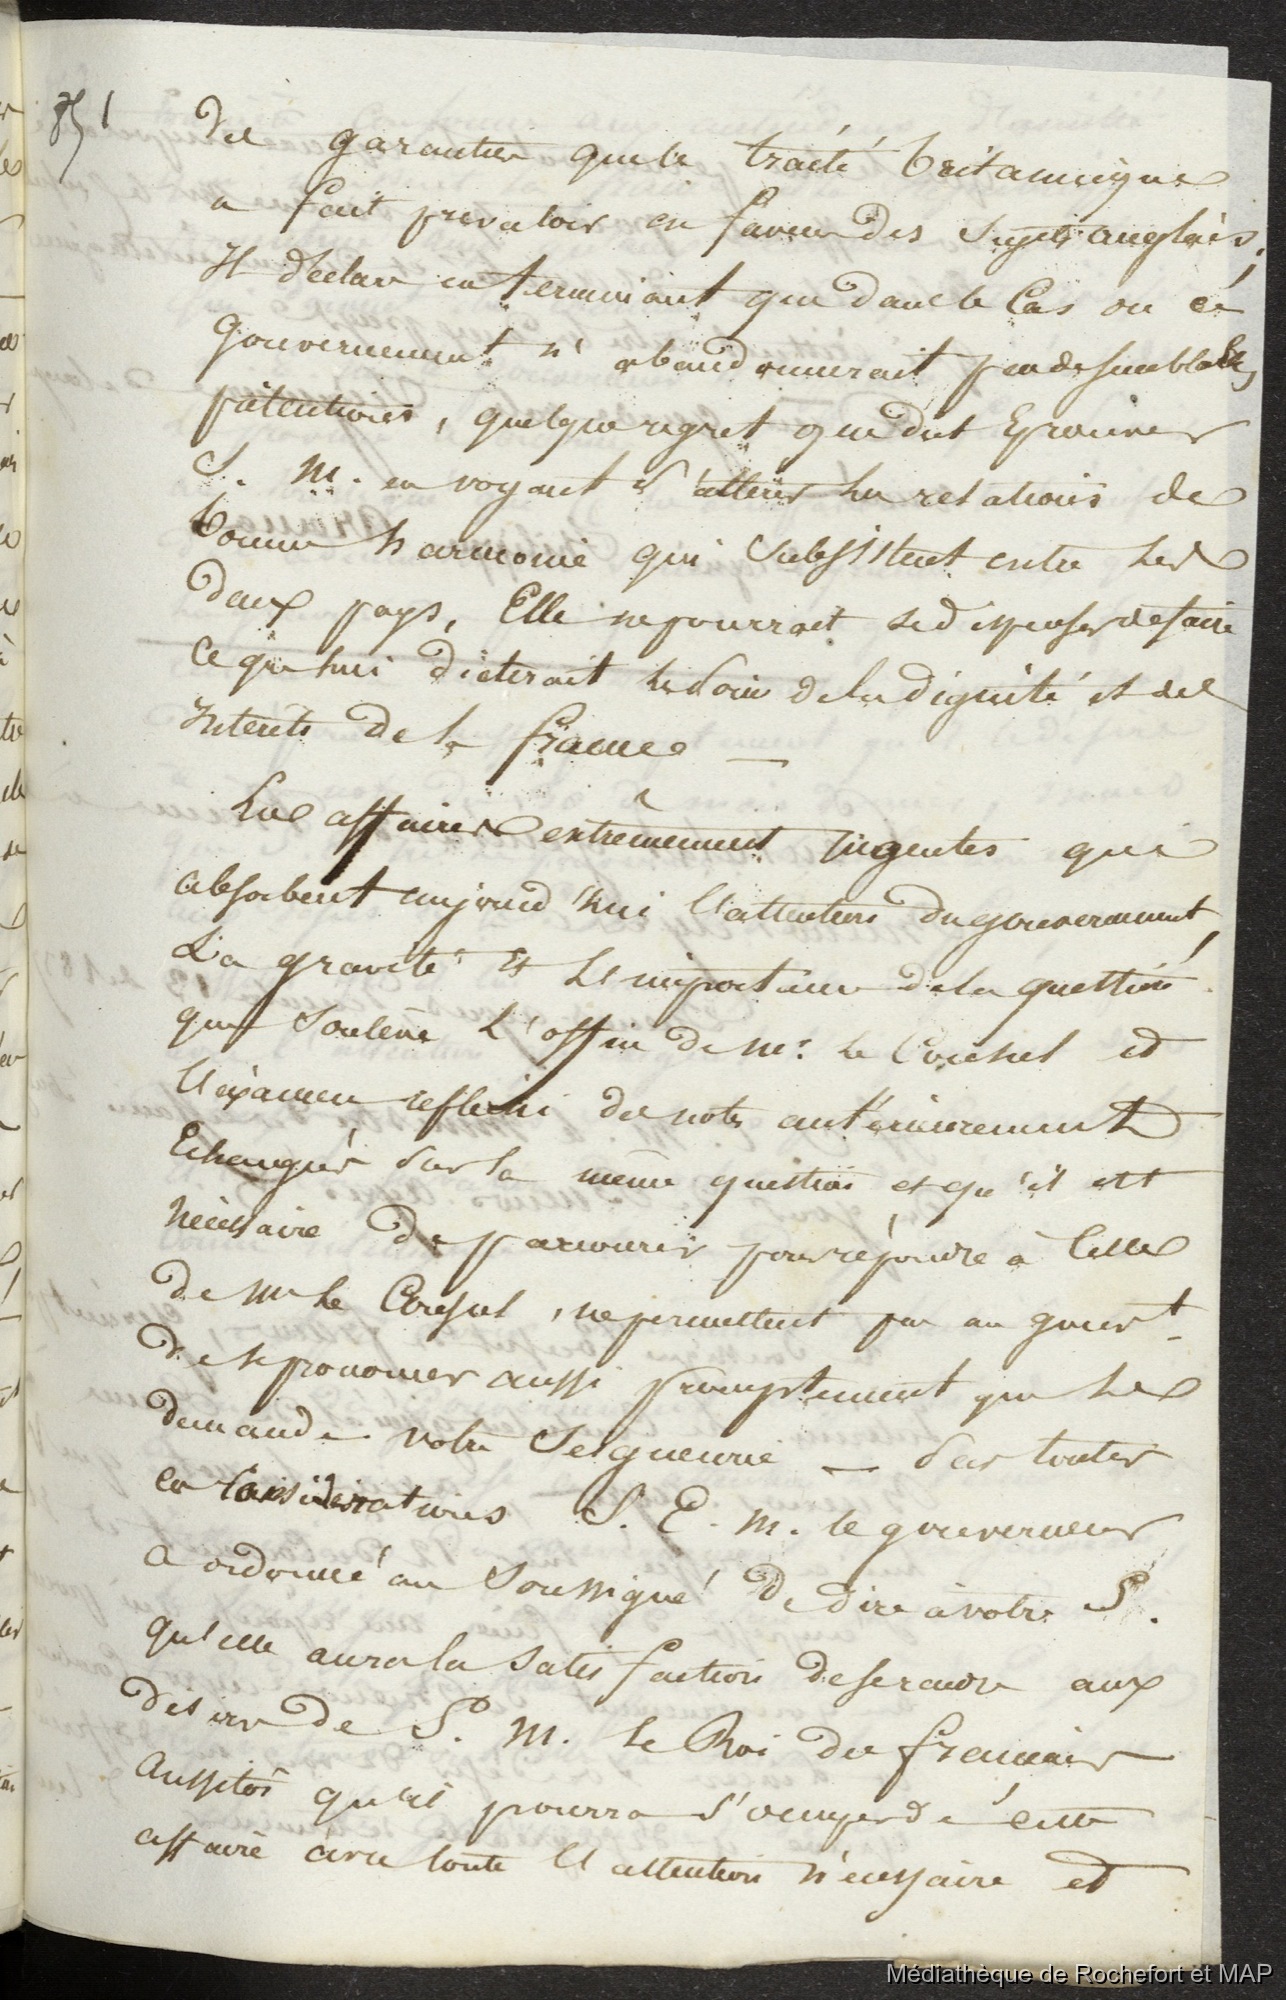 des garanties que le traité britannique
a fait prevaloir en faveur des sujets anglais,
Il declare en terminant que dans le Cas ou ce
gouvernement n'abandonnerait pas de semblables
pretentions, quelque regret que dut Eprouver
S. M. en voyant s'alterer les relations de
bonne harmonie qui subsistent entre les
deux pays, Elle ne pourrait se dispenser de faire
ce que lui dicterait le soin de la dignité et des
interets de la france —
Les affaires extrêmement urgentes qui
absorbent aujourd'hui l'attention du gouvernement,
La gravité et l'importance de la question
que soulève l'office de Mr. le Consul et
l'examen reflechi des notes antérieurement
Echangées sur la même question et qu'il est
nécessaire de parcourir pour répondre à Celle
de Mr le Consul, ne permettent pas au gouvert.
de se prononcer aussi promptement que le
demande votre Seigneurie — par toutes
ces considerations S. E. M. le gouverneur
a ordonné au Soussigné de dire à votre S.
qu'elle aura la satisfaction de se rendre aux
desirs de S. M. le Roi des français
aussitôt qu'il pourra s'occuper de cette
affaire avec toute l'attention nécessaire et
Médiathèque de Rochefort et MAP